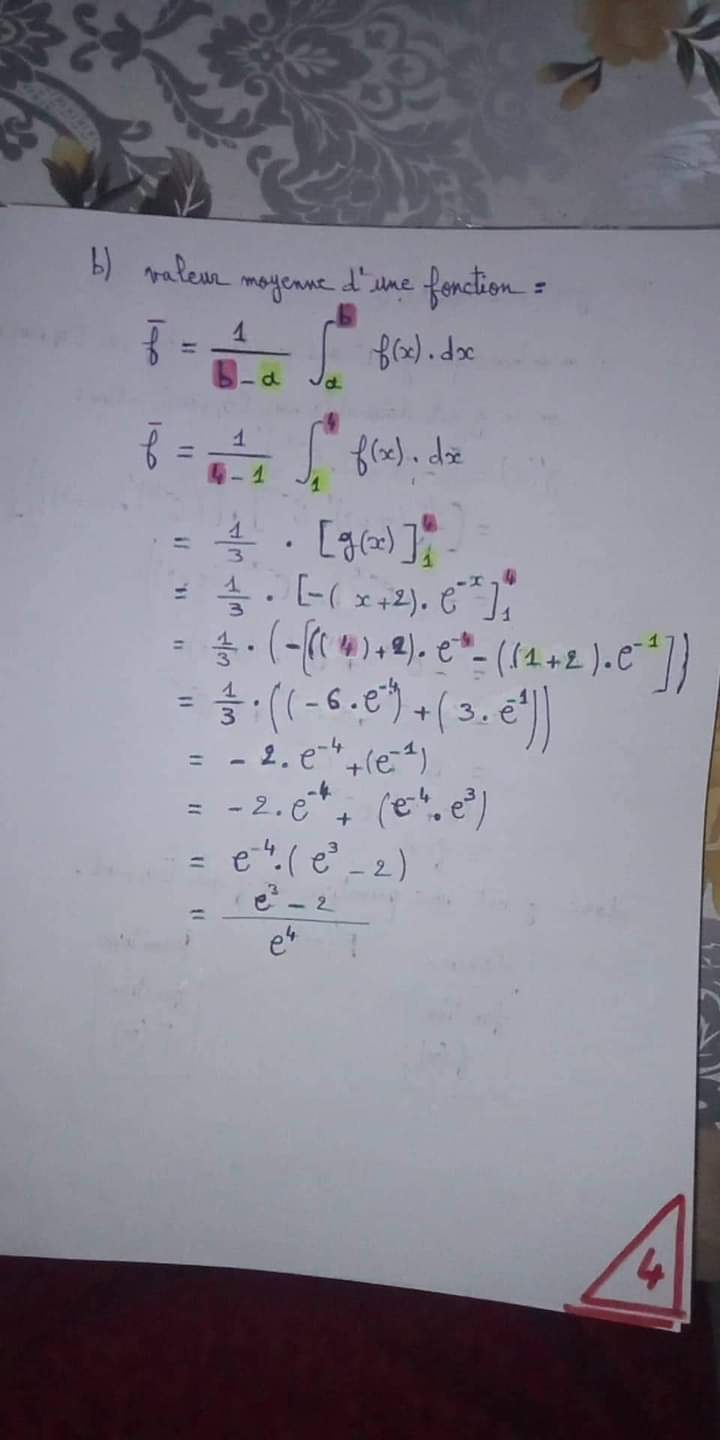 b) valeur moyenne d'une fonction =
f̄ = 1/(b-a) ∫_a^b f(x).dx
f̄ = 1/(4-1) ∫_1^4 f(x).dx
= 1/3 . [g(x)]_1^4
= 1/3 . [-(x+2).e^{-x}]_1^4
= 1/3 . (-[((4)+2).e^{-4} - ((1+2).e^{-1}])
= 1/3 . ((-6.e^{-4}) + (3.e^{-1}))
= -2.e^{-4} + (e^{-1})
= -2.e^{-4} + (e^{-4}.e^3)
= e^{-4}.(e^3 - 2)
= (e^3 - 2)/e^4
4